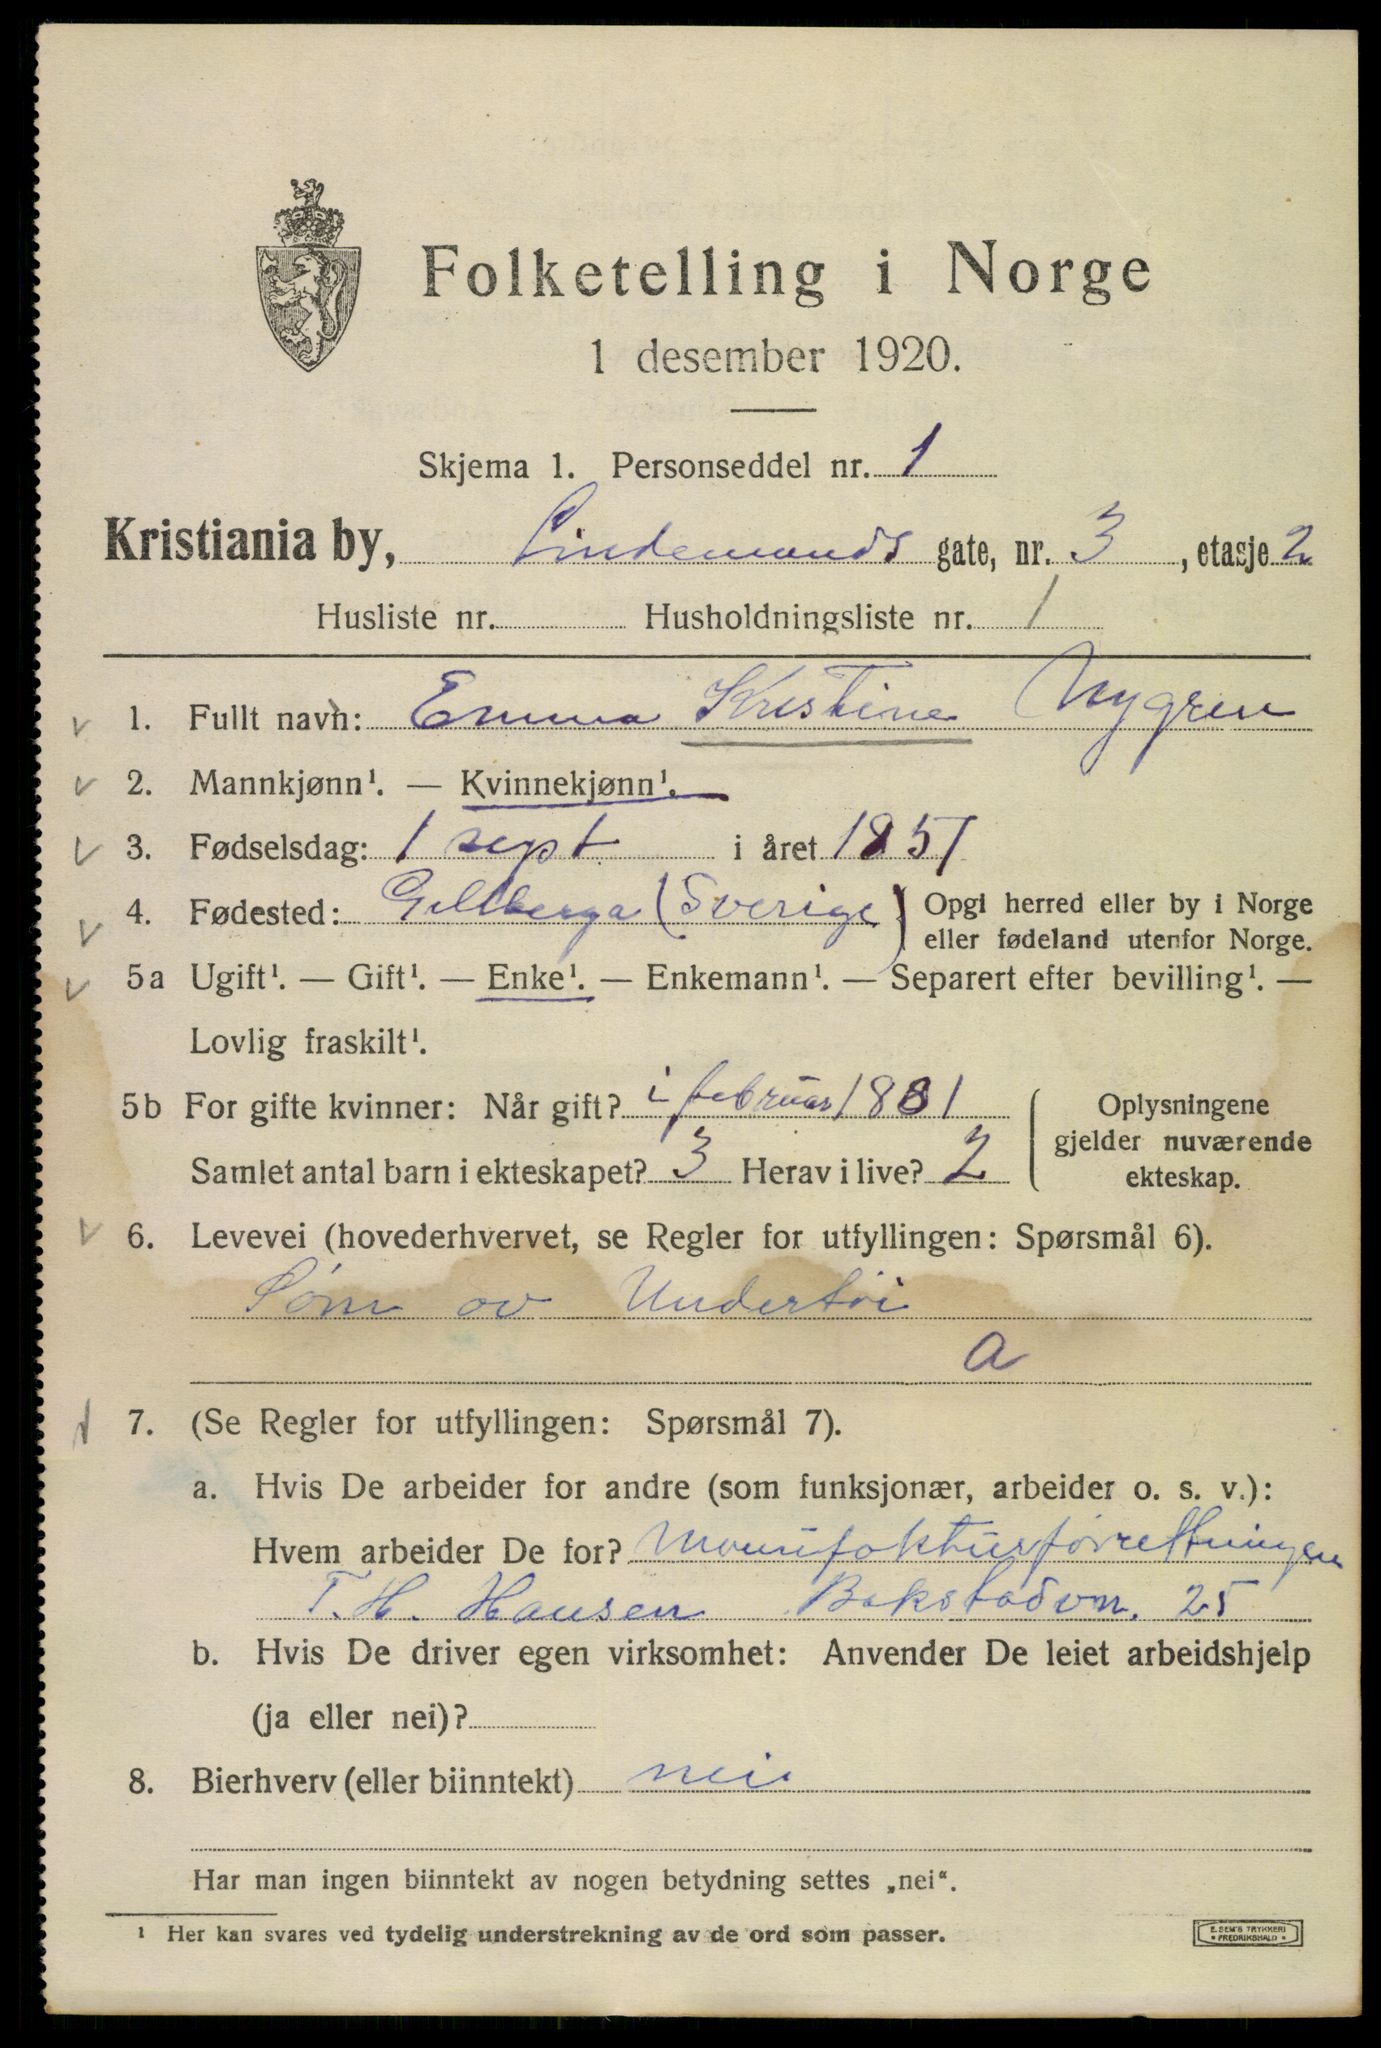 Folketelling i Norge
1 desember 1920.
Skjema 1. Personseddel nr. 1
Kristiania by, Lindemands gate, nr. 3, etasje 2
Husliste nr. Husholdningsliste nr. 1
1. Fullt navn: Emma Kristine Nygren
2. Mannkjønn¹. — Kvinnekjønn¹.
3. Fødselsdag: 1 sept i året 1857
4. Fødested: Gillberga (Sverige) Opgi herred eller by i Norge
eller fødeland utenfor Norge.
5a Ugift¹. — Gift¹. — Enke¹. — Enkemann¹. — Separert efter bevilling¹. —
Lovlig fraskilt¹.
5b For gifte kvinner: Når gift? i februar 1881
Samlet antal barn i ekteskapet? 3 Herav i live? 2
Oplysningene
gjelder nuværende
ekteskap.
6. Levevei (hovederhvervet, se Regler for utfyllingen: Spørsmål 6).
Søm av Undertøi
a
7. (Se Regler for utfyllingen: Spørsmål 7).
a. Hvis De arbeider for andre (som funksjonær, arbeider o. s. v.):
Hvem arbeider De for? Manufakturforretningen
T. H. Hansen Bokstadvn. 25
b. Hvis De driver egen virksomhet: Anvender De leiet arbeidshjelp
(ja eller nei)?
8. Bierhverv (eller biinntekt) nei
Har man ingen biinntekt av nogen betydning settes „nei“.
¹ Her kan svares ved tydelig understrekning av de ord som passer.
E. SEM'S TRYKKERI
* FREDRIKSHALD *